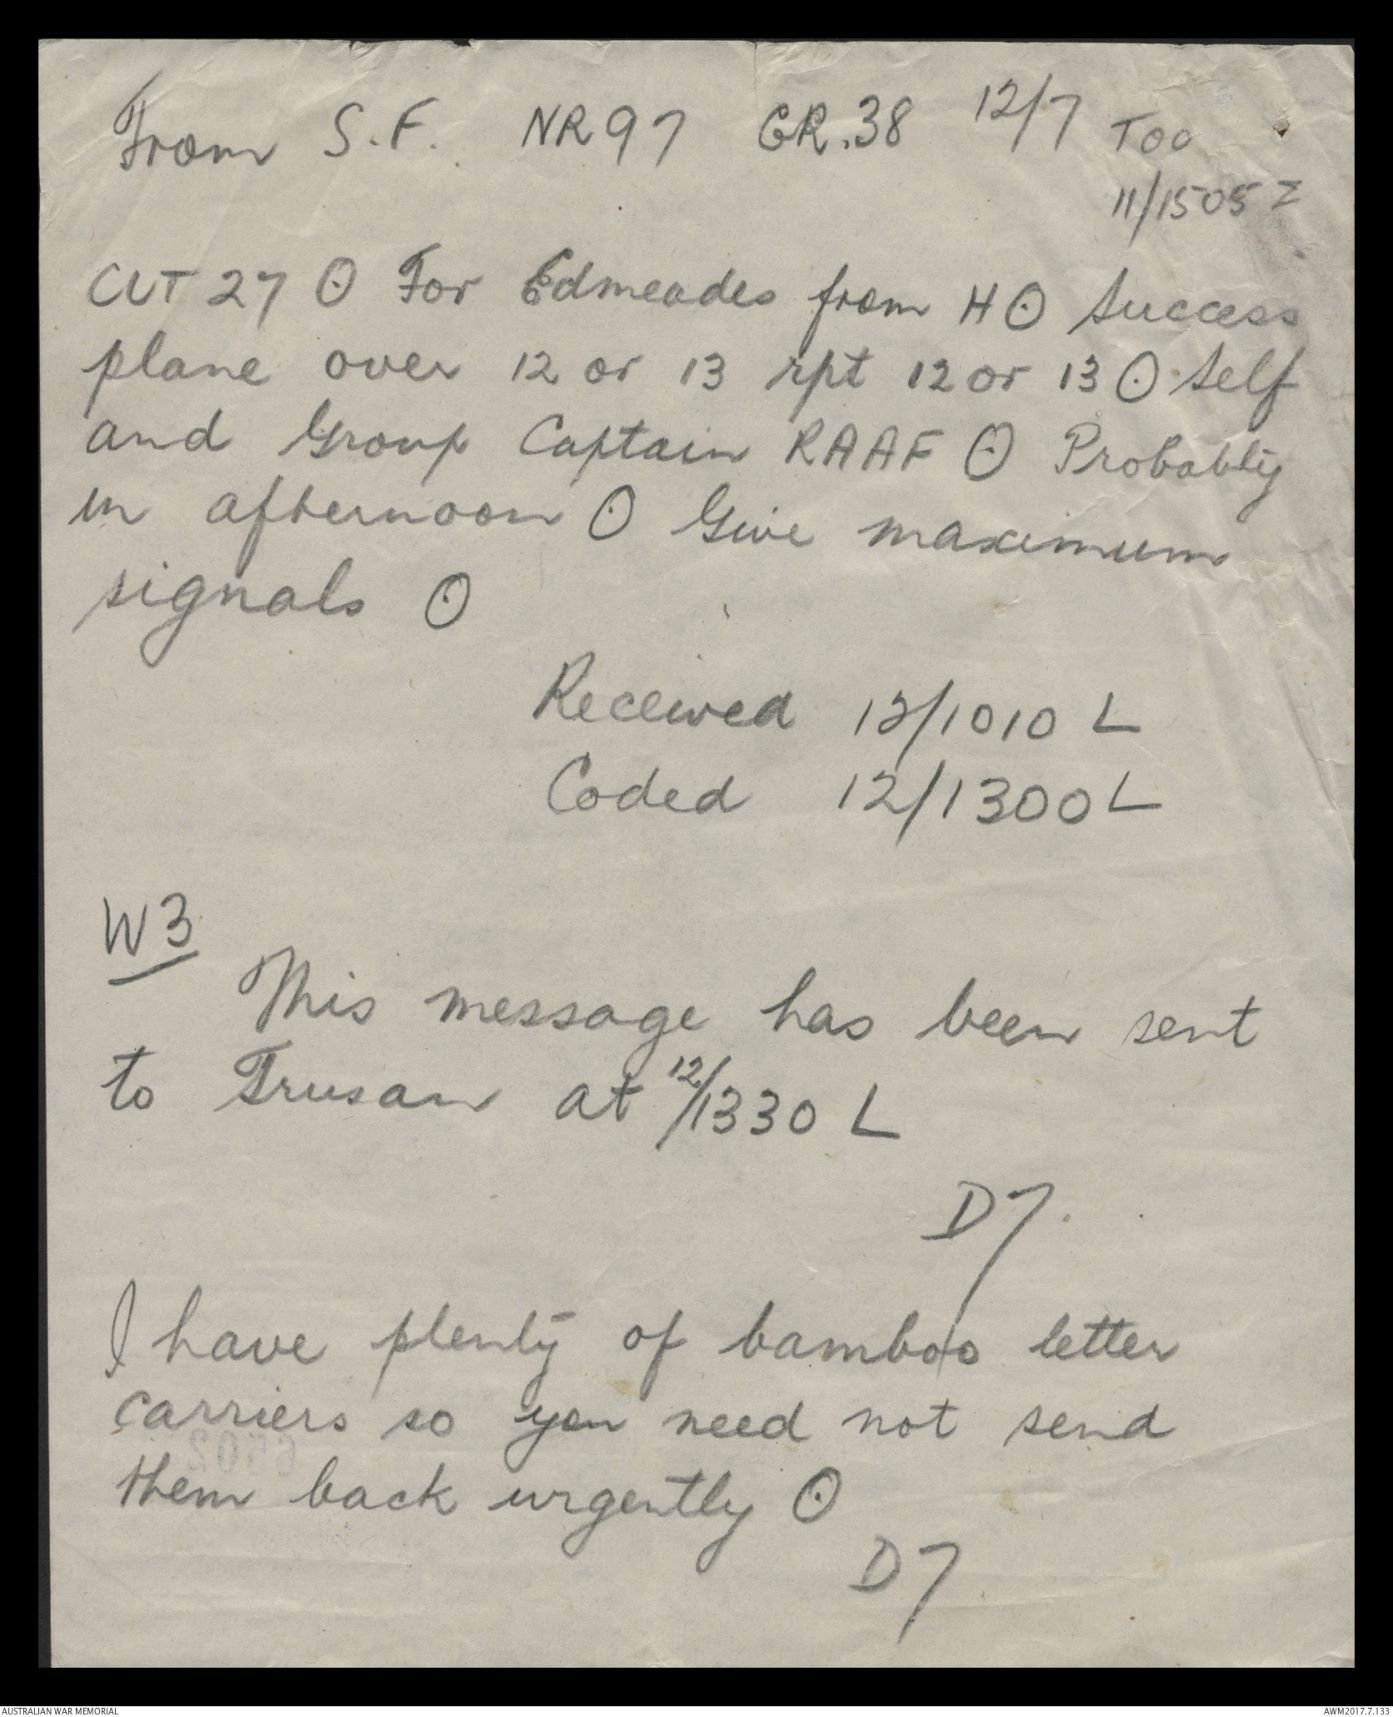 From S.F. NR97 GR.38 12/7 TOO
11/1505Z
CUT 27 ⊙ For Edmeades from H ⊙ Success
plane over 12 or 13 rpt 12 or 13 ⊙ Self
and Group Captain RAAF ⊙ Probably
in afternoon ⊙ Give maximum
signals ⊙
Received 12/1010 L
Coded 12/1300 L
W3
This message has been sent
to Trusan at 12/1330 L
D7.
I have plenty of bamboo letter
carriers so you need not send
them back urgently ⊙
D7
AUSTRALIAN WAR MEMORIAL
AWM2017.7.133